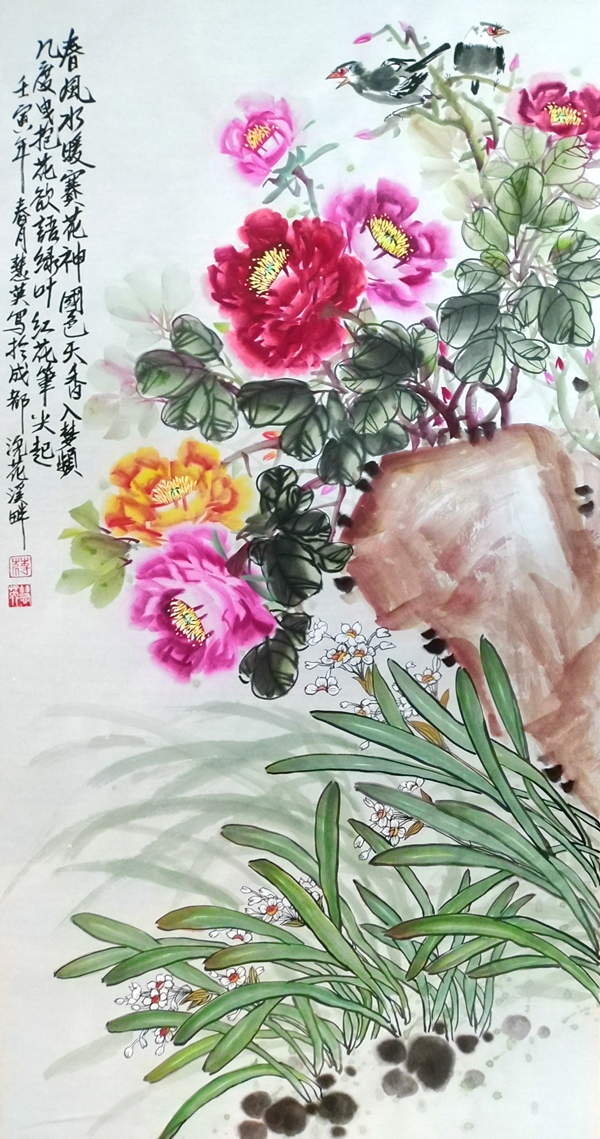 春风水暖赛花神國色天香入梦频
几度曳抱花欲語绿叶红花筆尖起
壬寅年春月慧英写於成都浣花溪畔